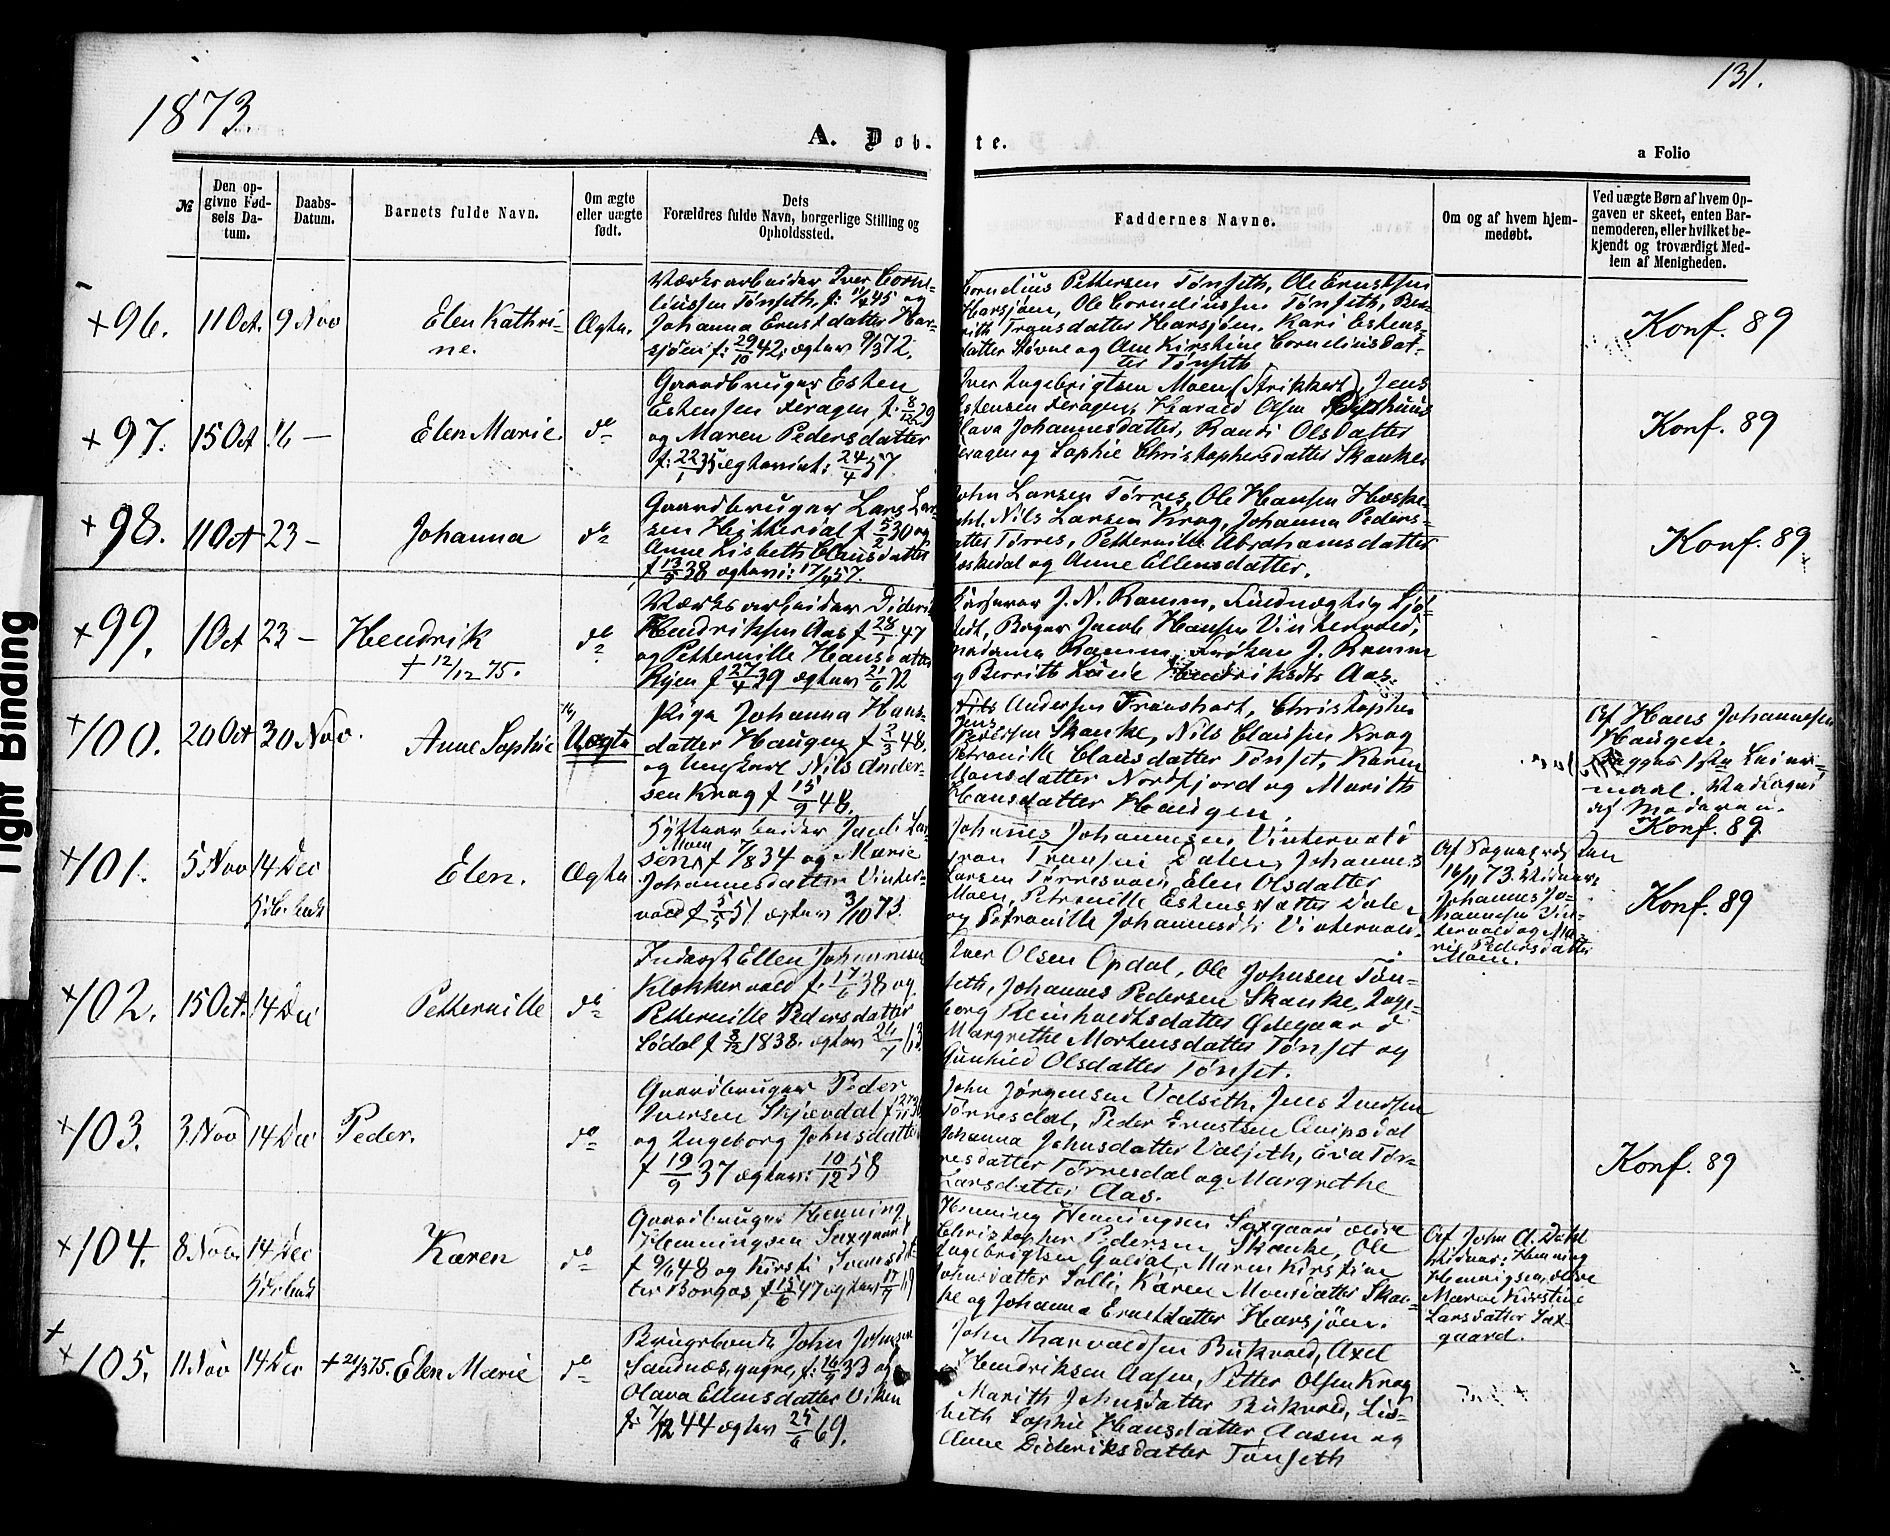 1873.
131.
A. Dob- te.
a Folio
№
Den op-
givne Fød-
sels Da-
tum.
Daabs-
Datum.
Barnets fulde Navn.
Om ægte
eller uægte
født.
Dets
Forældres fulde Navn, borgerlige Stilling og
Opholdssted.
Faddernes Navne.
Om og af hvem hjem-
medøbt.
Ved uægte Børn af hvem Op-
gaven er skeet, enten Bar-
nemoderen, eller hvilket be-
kjendt og troværdigt Med-
lem af Menigheden.
+ 96.
11 Oct.
9 Nov
Elen Kathri-
ne.
Ægte.
Værksarbeider Iver Corne-
liussen Tønseth, f: 1/4 45 og
Johanna Ernstdatter Har-
sjøen f: 29/10 42, ægtev 9/3 72.
Cornelius Pettersen Tønseth, Ole Ernstsen
Harsjøen, Ole Corneliussen Tønseth, Be-
rith Transdatter Harsjøen, Kari Estens-
datter Støvne og Ane Kirstine Corneliusdat-
ter Tønseth
Konf. 89
+ 97.
15 Oct
16 —
Elen Marie.
do
Gaardbruger Esten
Estensen Feragen f. 8/12 29
og Maren Pedersdatter
f: 22/1 35 ægteviet: 24/4 57
Iver Ingebrigtsen Moen (Strikkert), Jens
Estensen Feragen, Harald Olsen
Olava Johannesdatter, Randi Olsdatter
Feragen og Sophie Christophersdatter Skanker
Konf. 89
+ 98.
11 Oct
23 —
Johanna
do
Gaardbruger Lars Lar-
sen Hitterdal f 5/2 30 og
Anne Lisbeth Clausdatter
f 13/5 38 ægtevi: 17/ 57.
John Larsen Tørres, Ole Hansen Høske-
dal, Nils Larsen Krog, Johanna Peders-
datter Tørres, Petternille Abrahamsdatter
Høskedal og Anne Ellensdatter.
Konf. 89
+ 99.
1 Oct
23 —
Hendrik
+ 12/12 75.
do
Værksarbeider Dideri
Hendriksen Aas f 28/1 47
og Petternille Hansdatter
Ryen f 27/4 39 ægtev 21/6 72
J. N. Ramm,
Jacob Hansen Vintervold,
Madama Ramm, Frøken J. Ramm
og Berrith Lucie Hendriksdtr Aas.
+ 100.
20 Oct
30 Nov.
Anne Sophie
Uægte
Pige Johanna Hans-
datter Haugen f 2/3 48.
og Ungkarl Nils Ander-
sen Krog f 15/9 48.
Nils Andersen Christopher
Jens
Skanke, Nils Clausen Krog
Petronille Clausdatter Tønset, Karen
Monsdatter Nordfjord og Marith
Hansdatter Haugen.
Af Hans Johannesen
Haugen.
Begges 1ste Leier-
maal. Vedtaget
af Moderen.
Konf. 89.
+ 101.
5 Nov
14 Dec
Elen.
Ægte
Hyttearbeider Jacob Lar-
Moen
sen f 7/8 34 og Marie
Johannesdatter Vinter-
vold f 5/5 51 ægtev 3/10 73.
Johannes Johannesen Vintervold
Tron Tronsen Dalen, Johannes
Larsen Tørresvoll, Elen Olsdatter
Moen, Petronille Estensdatter Dale
og Petronille Johannesdtr Vintervold.
Af Sognepræsten
16/11 73. Vidner:
Johannes Jo-
hannesen Vin-
tervold og Ma-
rie Pedersdatter
Moen.
Konf. 89
+ 102.
15 Oct.
14 Dec
Petternille
do
Inderst Ellen Johannesen
Klokkervold f. 17/6 38 og
Petternille Pedersdatter
Lødal f 8/12 1838. ægtev 24/7 63
Iver Olsen Opdal, Ole Johnsen Tøn-
seth, Johannes Pedersen Skanke, Inge-
borg Reinholdtsdatter Ødegaard
Margrethe Mortensdatter Tønset og
Gunhild Olsdatter Tønset.
+ 103.
3 Nov
14 Dec
Peder.
do
Gaardbruger Peder
Iversen Skjævdal f 12/11 36
og Ingeborg Johnsdatter
f 19/9 37 ægtev: 10/12 58
John Jørgensen Valseth, Jens Iversen
Tørresdal, Peder Ernstsen Qvipsdal
Johanna Johnsdatter Valseth, Eva Tør-
resdatter Tørresdal og Margrethe
Larsdatter Aas.
Konf. 89
+ 104.
8 Nov.
14 Dec
Karen
do
Gaardbruger Henning
Henningsen Saxgaard
f 9/6 48 og Kirsti Svensdat-
ter Borgos f 15/6 47 ægtev 17/7 69
Henning Henningsen Saxgaard ældre
Christopher Pedersen Skanke, Ole
Ingebrigtsen Galdal, Maren Kirstine
Johnsdatter Solli, Karen Monsdatter Skan-
ke og Johanna Ernstdatter Harsjøen.
Af John A. Dahl
Vidner: Henning
Henningsen, ældre
Maren Kirstine
Larsdatter Sax-
gaard.
+
+ 105.
11 Nov
14 Dec
+ 21/3 75. Elen Marie
do
Brugsbonde John Johnsen
Sandnæs, yngre, f: 16/9 33 og
Olava Ellensdatter Viken
f: 7/12 44 ægtev 25/6 69.
John Tharvaldsen Bukvold, Axel
Hendriksen Aasen, Petter Olsen Krog
Marith Johnsdatter Bukvold, Lis-
beth Sophie Hansdatter Aasen og
Anne Dideriksdatter Tønseth
Tight Binding